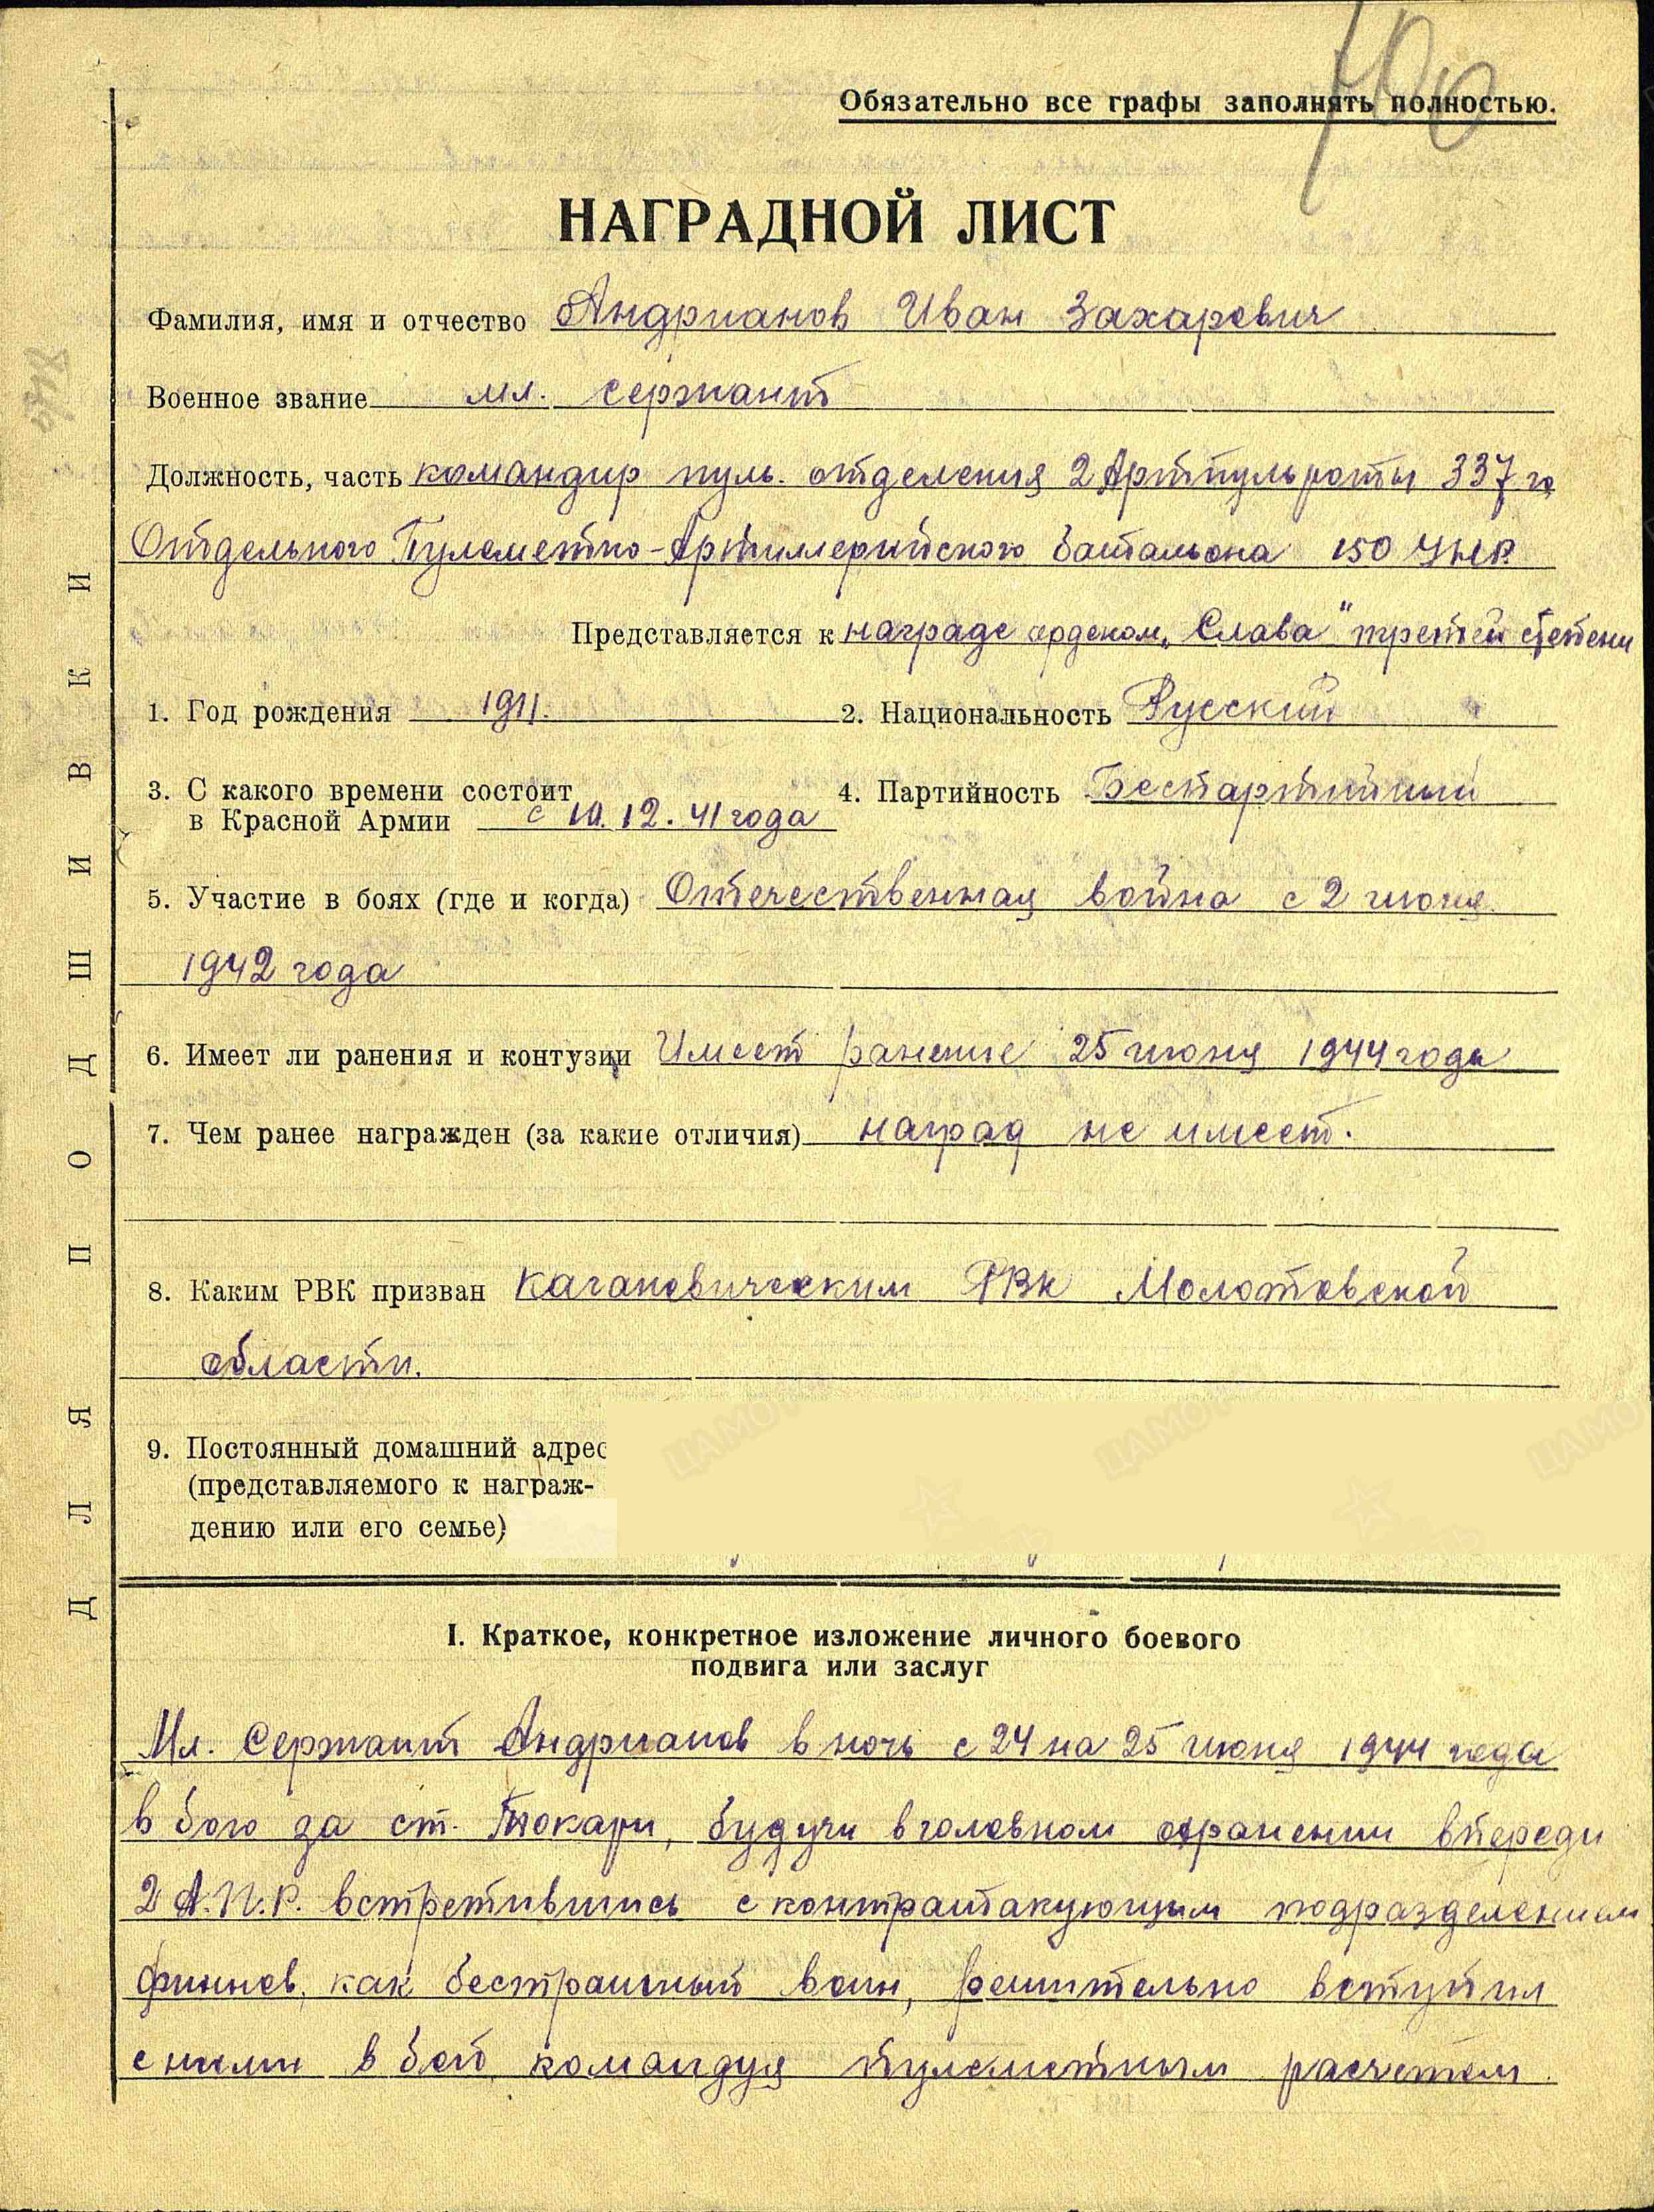 700
Обязательно все графы заполнять полностью.
НАГРАДНОЙ ЛИСТ
Фамилия, имя и отчество Андрианов Иван Захарович
Военное звание мл. сержант
Должность, часть командир пуль. отделения 2 Артпульроты 337 го
Отдельного Пулеметно-Артиллерийского батальона 150 УкР.
Представляется к награде орденом „Слава" третей степени
1. Год рождения 1911. 2. Национальность Русский
3. С какого времени состоит
в Красной Армии с 10.12.41 года 4. Партийность Беспартийный
5. Участие в боях (где и когда) Отечественная война с 2 июня
1942 года
6. Имеет ли ранения и контузии Имеет ранение 25 июня 1944 года
7. Чем ранее награжден (за какие отличия) наград не имеет.
8. Каким РВК призван Кагановическим РВК Молотовской
области.
9. Постоянный домашний адрес
(представляемого к награж-
дению или его семье)
I. Краткое, конкретное изложение личного боевого
подвига или заслуг
Мл. Сержант Андрианов в ночь с 24 на 25 июня 1944 года
в бою за ст. Токари, будучи в головном охранении впереди
2 А.П.Р. встретившись с контратакующим подразделением
финнов, как бестрашный воин, решительно вступил
с ними в бой командуя пулеметным расчетом.
ДЛЯ ПОДШИВКИ